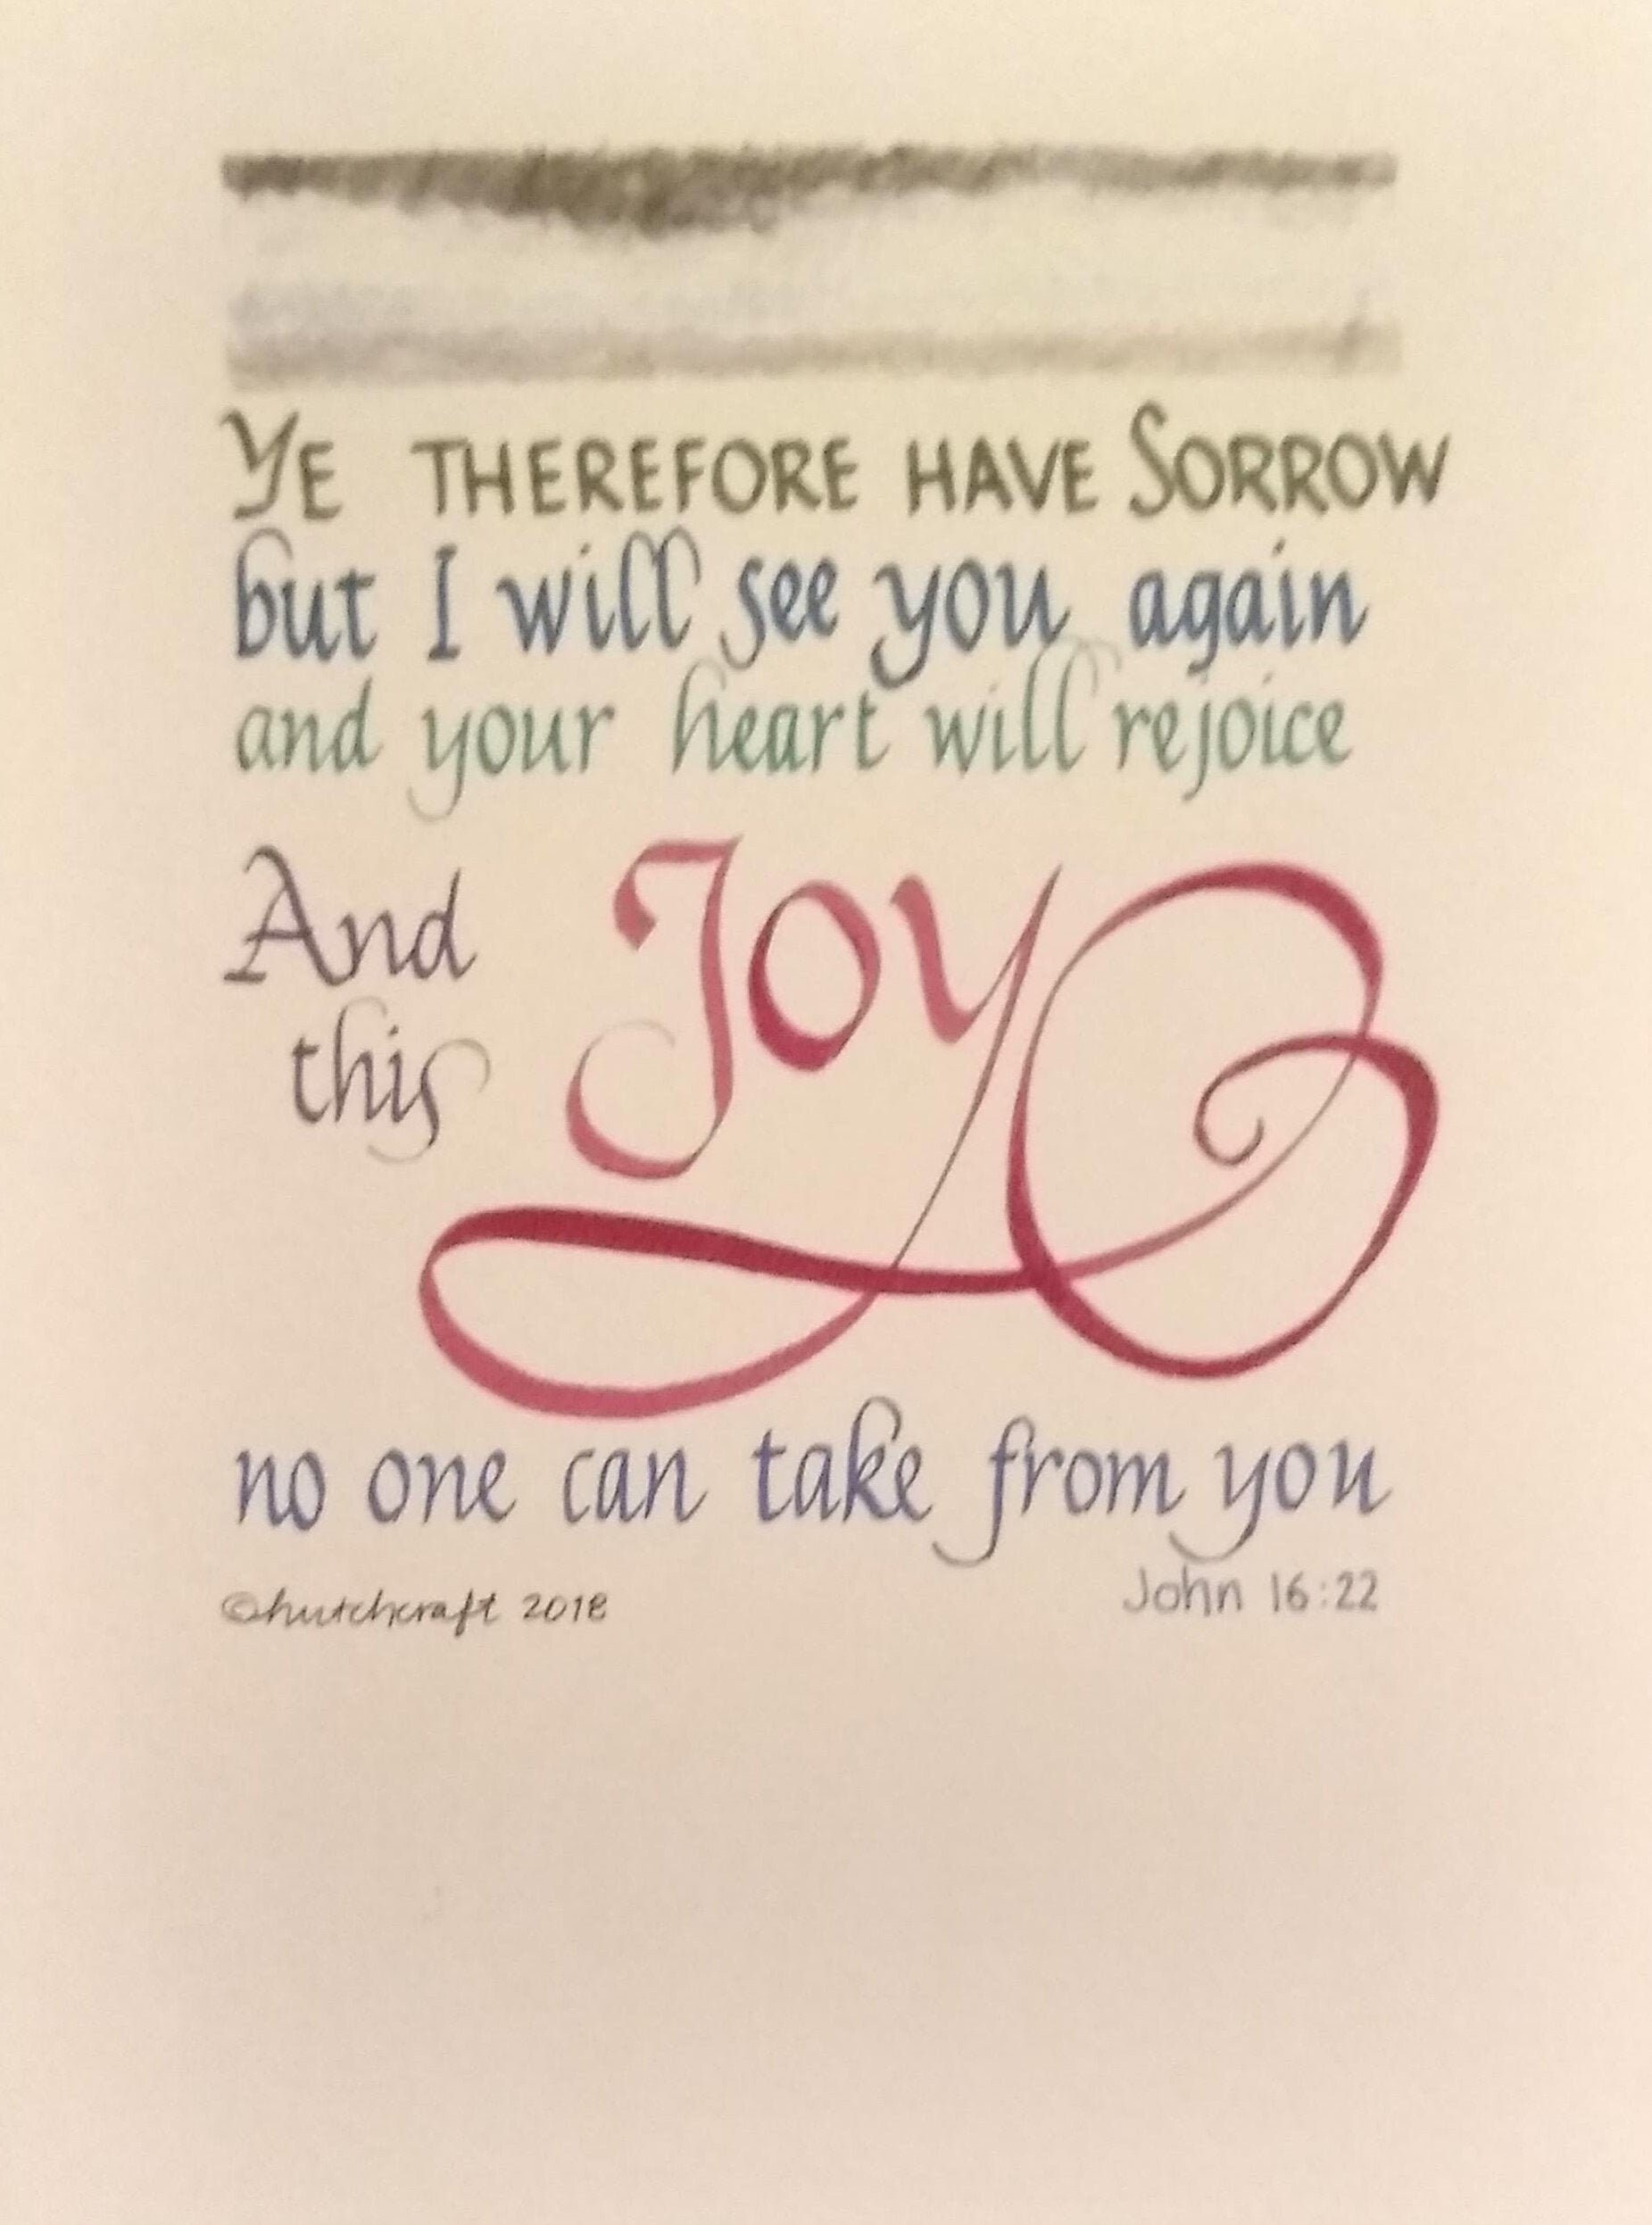 YE THEREFORE HAVE SORROW
but I will see you again
and your heart will rejoice
And
this
JOY
no one can take from you
©hutchcraft 2018
John 16:22